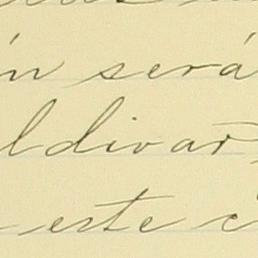 ń será
ldivar,
este c